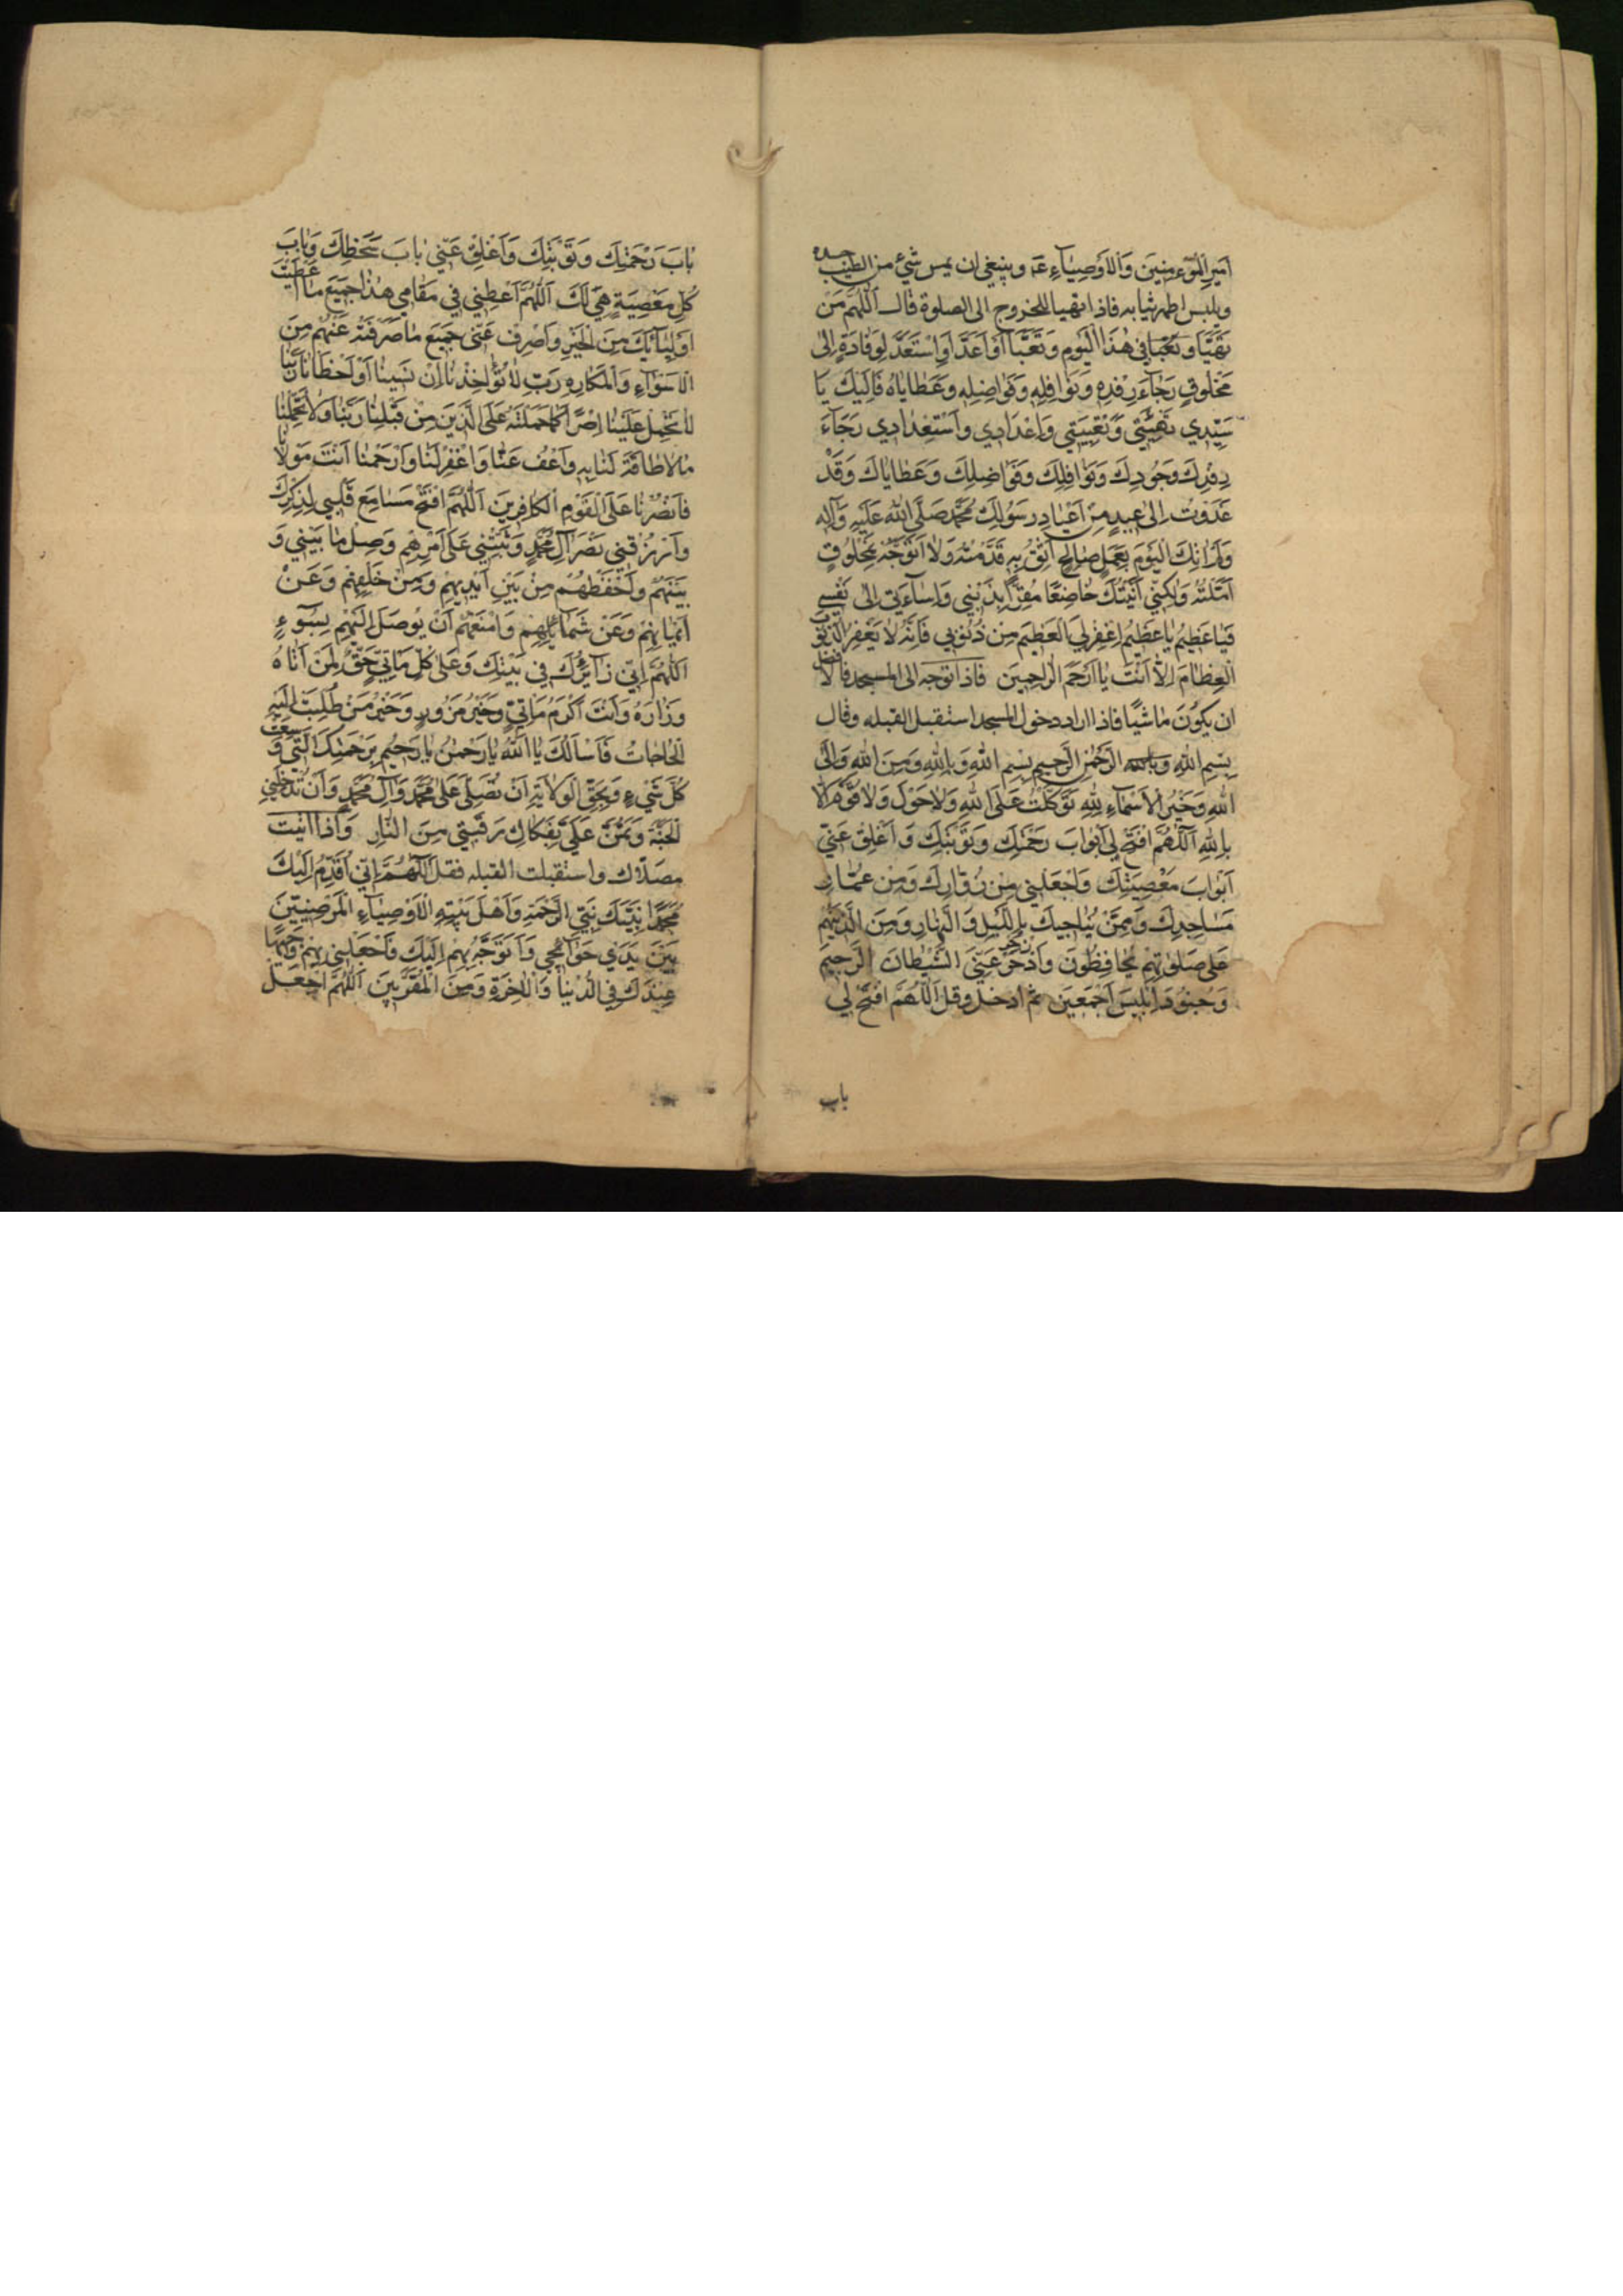 اَمِيرِ الْمُؤْمِنِينَ وَالْاَوْصِيَاءِ عَ وينبغي ان يمس شيء من الطيب جسده
ويلبس اطهر ثيابه فاذا تهيا للخروج الى الصلوة قال اَللّٰهُمَّ مَنْ
تَهَيَّأَ وَتَعَبَّأَ فِي هٰذَا الْيَوْمِ وَتَعَبَّأَ اَوْ اَعَدَّ اَوِ اسْتَعَدَّ لِوِفَادَةٍ اِلىٰ
مَخْلُوقٍ رَجَاءَ رِفْدِهِ وَنَوَافِلِهِ وَفَوَاضِلِهِ وَعَطَايَاهُ فَاِلَيْكَ يَا
سَيِّدِي تَهْيِئَتِي وَتَعْبِيَتِي وَاعْدَادِي وَاسْتِعْدَادِي رَجَاءَ
رِفْدِكَ وَجُودِكَ وَنَوَافِلِكَ وَفَوَاضِلِكَ وَعَطَايَاكَ وَقَدْ
غَدَوْتُ اِلىٰ عِيدٍ مِنْ اَعْيَادِ رَسُولِكَ مُحَمَّدٍ صَلَّى اللّٰهُ عَلَيْهِ وَآلِهِ
وَلَمْ اٰتِكَ الْيَوْمَ بِعَمَلٍ صَالِحٍ اَثِقُ بِهِ قَدَّمْتُهُ وَلَا اَتَوَجَّهُ بِمَخْلُوقٍ
اَمَّلْتُهُ وَلٰكِنِّي اَتَيْتُكَ خَاضِعًا مُقِرًّا بِذَنْبِي وَاِسَاءَتِي اِلىٰ نَفْسِي
فَيَا عَظِيمُ يَا عَظِيمُ اِغْفِرْ لِيَ الْعَظِيمَ مِنْ ذُنُوبِي فَاِنَّهُ لَا يَغْفِرُ الذُّنُوبَ
الْعِظَامَ اِلَّا اَنْتَ يَا اَرْحَمَ الرَّاحِمِينَ فاذا توجه الى المسجد فالافضل
ان يكون ماشيًا فاذا اراد دخول المسجد استقبل القبله وقال
بِسْمِ اللّٰهِ وَبِاللّٰهِ الرَّحْمٰنِ الرَّحِيمِ بِسْمِ اللّٰهِ وَبِاللّٰهِ وَمِنَ اللّٰهِ وَاِلَى
اللّٰهِ وَخَيْرُ الْاَسْمَاءِ لِلّٰهِ تَوَكَّلْتُ عَلَى اللّٰهِ وَلَا حَوْلَ وَلَا قُوَّةَ اِلَّا
بِاللّٰهِ اَللّٰهُمَّ افْتَحْ لِي اَبْوَابَ رَحْمَتِكَ وَتَوْبَتِكَ وَاَغْلِقْ عَنِّي
اَبْوَابَ مَعْصِيَتِكَ وَاجْعَلْنِي مِنْ زُوَّارِكَ وَمِنْ عُمَّارِ
مَسَاجِدِكَ وَمِمَّنْ يُنَاجِيكَ بِاللَّيْلِ وَالنَّهَارِ وَمِنَ الَّذِينَهُمْ
عَلىٰ صَلٰوتِهِمْ يُحَافِظُونَ وَادْحَرْ عَنِّيَ الشَّيْطَانَ الرَّجِيمَ
وَجُنُودَ اِبْلِيسَ اَجْمَعِينَ ثم ادخل وقل اَللّٰهُمَّ افْتَحْ لِي
باب
بَابَ رَحْمَتِكَ وَتَوْبَتِكَ وَاَغْلِقْ عَنِّي بَابَ سَخَطِكَ وَبَابَ
كُلِّ مَعْصِيَةٍ هِيَ لَكَ اَللّٰهُمَّ اَعْطِنِي فِي مَقَامِي هٰذَا جَمِيعَ مَا اَعْطَيْتَ
اَوْلِيَائَكَ مِنَ الْخَيْرِ وَاصْرِفْ عَنِّي جَمِيعَ مَا صَرَفْتَهُ عَنْهُمْ مِنَ
الْاَسْوَاءِ وَالْمَكَارِهِ رَبِّ لَا تُؤَاخِذْنَا اِنْ نَسِينَا اَوْ اَخْطَأْنَا رَبَّنَا
لَا تَحْمِلْ عَلَيْنَا اِصْرًا كَمَا حَمَلْتَهُ عَلَى الَّذِينَ مِنْ قَبْلِنَا رَبَّنَا وَلَا تُحَمِّلْنَا
مَا لَا طَاقَةَ لَنَا بِهِ وَاعْفُ عَنَّا وَاغْفِرْ لَنَا وَارْحَمْنَا اَنْتَ مَوْلَانَا
فَانْصُرْنَا عَلَى الْقَوْمِ الْكَافِرِينَ اَللّٰهُمَّ افْتَحْ مَسَامِعَ قَلْبِي لِذِكْرِكَ
وَارْزُقْنِي نَصْرَ اٰلِ مُحَمَّدٍ وَثَبِّتْنِي عَلىٰ اَمْرِهِمْ وَصِلْ مَا بَيْنِي وَ
بَيْنَهُمْ وَاحْفَظْهُمْ مِنْ بَيْنِ اَيْدِيهِمْ وَمِنْ خَلْفِهِمْ وَعَنْ
اَيْمَانِهِمْ وَعَنْ شَمَائِلِهِمْ وَامْنَعْهُمْ اَنْ يُوصَلَ اِلَيْهِمْ بِسُوءٍ
اَللّٰهُمَّ اِنِّي زَائِرُكَ فِي بَيْتِكَ وَعَلىٰ كُلِّ مَاْتِيٍّ حَقٌّ لِمَنْ اَتَاهُ
وَزَارَهُ وَاَنْتَ اَكْرَمُ مَاْتِيٍّ وَخَيْرُ مَزُورٍ وَخَيْرُ مَنْ طُلِبَتْ اِلَيْهِ
الْحَاجَاتُ فَاَسْأَلُكَ يَا اَللّٰهُ يَا رَحْمٰنُ يَا رَحِيمُ بِرَحْمَتِكَ الَّتِي وَسِعَتْ
كُلَّ شَيْءٍ وَبِحَقِّ الْوَلَايَةِ اَنْ تُصَلِّيَ عَلىٰ مُحَمَّدٍ وَآلِ مُحَمَّدٍ وَاَنْ تُدْخِلَنِي
الْجَنَّةَ وَتَمُنَّ عَلَيَّ بِفَكَاكِ رَقَبَتِي مِنَ النَّارِ وَاذا اتيت
مصلاك واستقبلت القبله فقل اَللّٰهُمَّ اِنِّي اُقَدِّمُ اِلَيْكَ
مُحَمَّدًا نَبِيَّكَ نَبِيَّ الرَّحْمَةِ وَاَهْلَ بَيْتِهِ الْاَوْصِيَاءِ الْمَرْضِيِّينَ
بَيْنَ يَدَيْ حَوَائِجِي وَاَتَوَجَّهُ بِهِمْ اِلَيْكَ فَاجْعَلْنِي بِهِمْ وَجِيهًا
عِنْدَكَ فِي الدُّنْيَا وَالْاٰخِرَةِ وَمِنَ الْمُقَرَّبِينَ اَللّٰهُمَّ اجْعَلْ